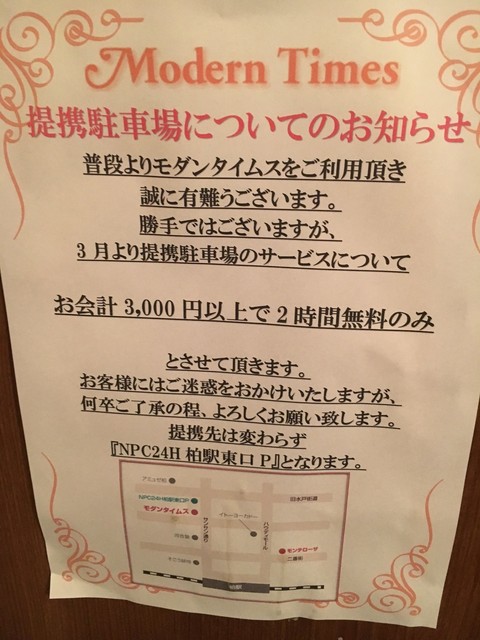 Modern Times
提携駐車場についてのお知らせ
普段よりモダンタイムスをご利用頂き
誠に有難うございます。
勝手ではございますが、
3月より提携駐車場のサービスについて
お会計 3,000 円以上で 2 時間無料のみ
とさせて頂きます。
お客様にはご迷惑をおかけいたしますが、
何卒ご了承の程、よろしくお願い致します。
提携先は変わらず
『NPC24H 柏駅東口 P』となります。
NPC24H柏駅東口P
モダンタイムス
サンサン通り
イトーヨーカドー
ハウディモール
旧水戸街道
モンテローザ
二番街
柏駅